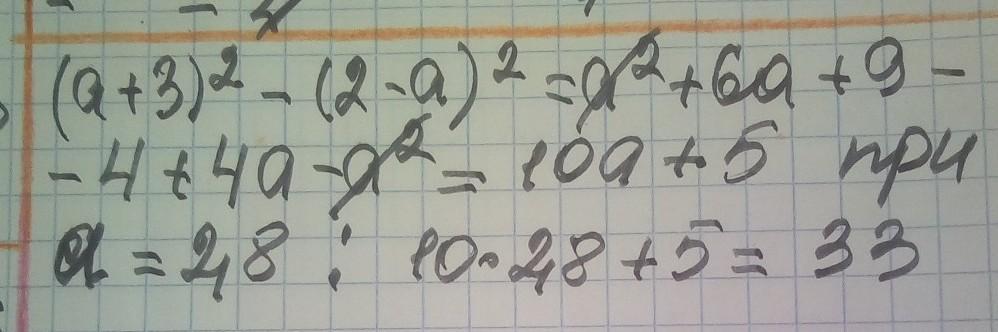 (a+3)² - (2-a)² = a² + 6a + 9 -
- 4 + 4a - a² = 10a + 5 при
a = 2,8 : 10·2,8 + 5 = 33